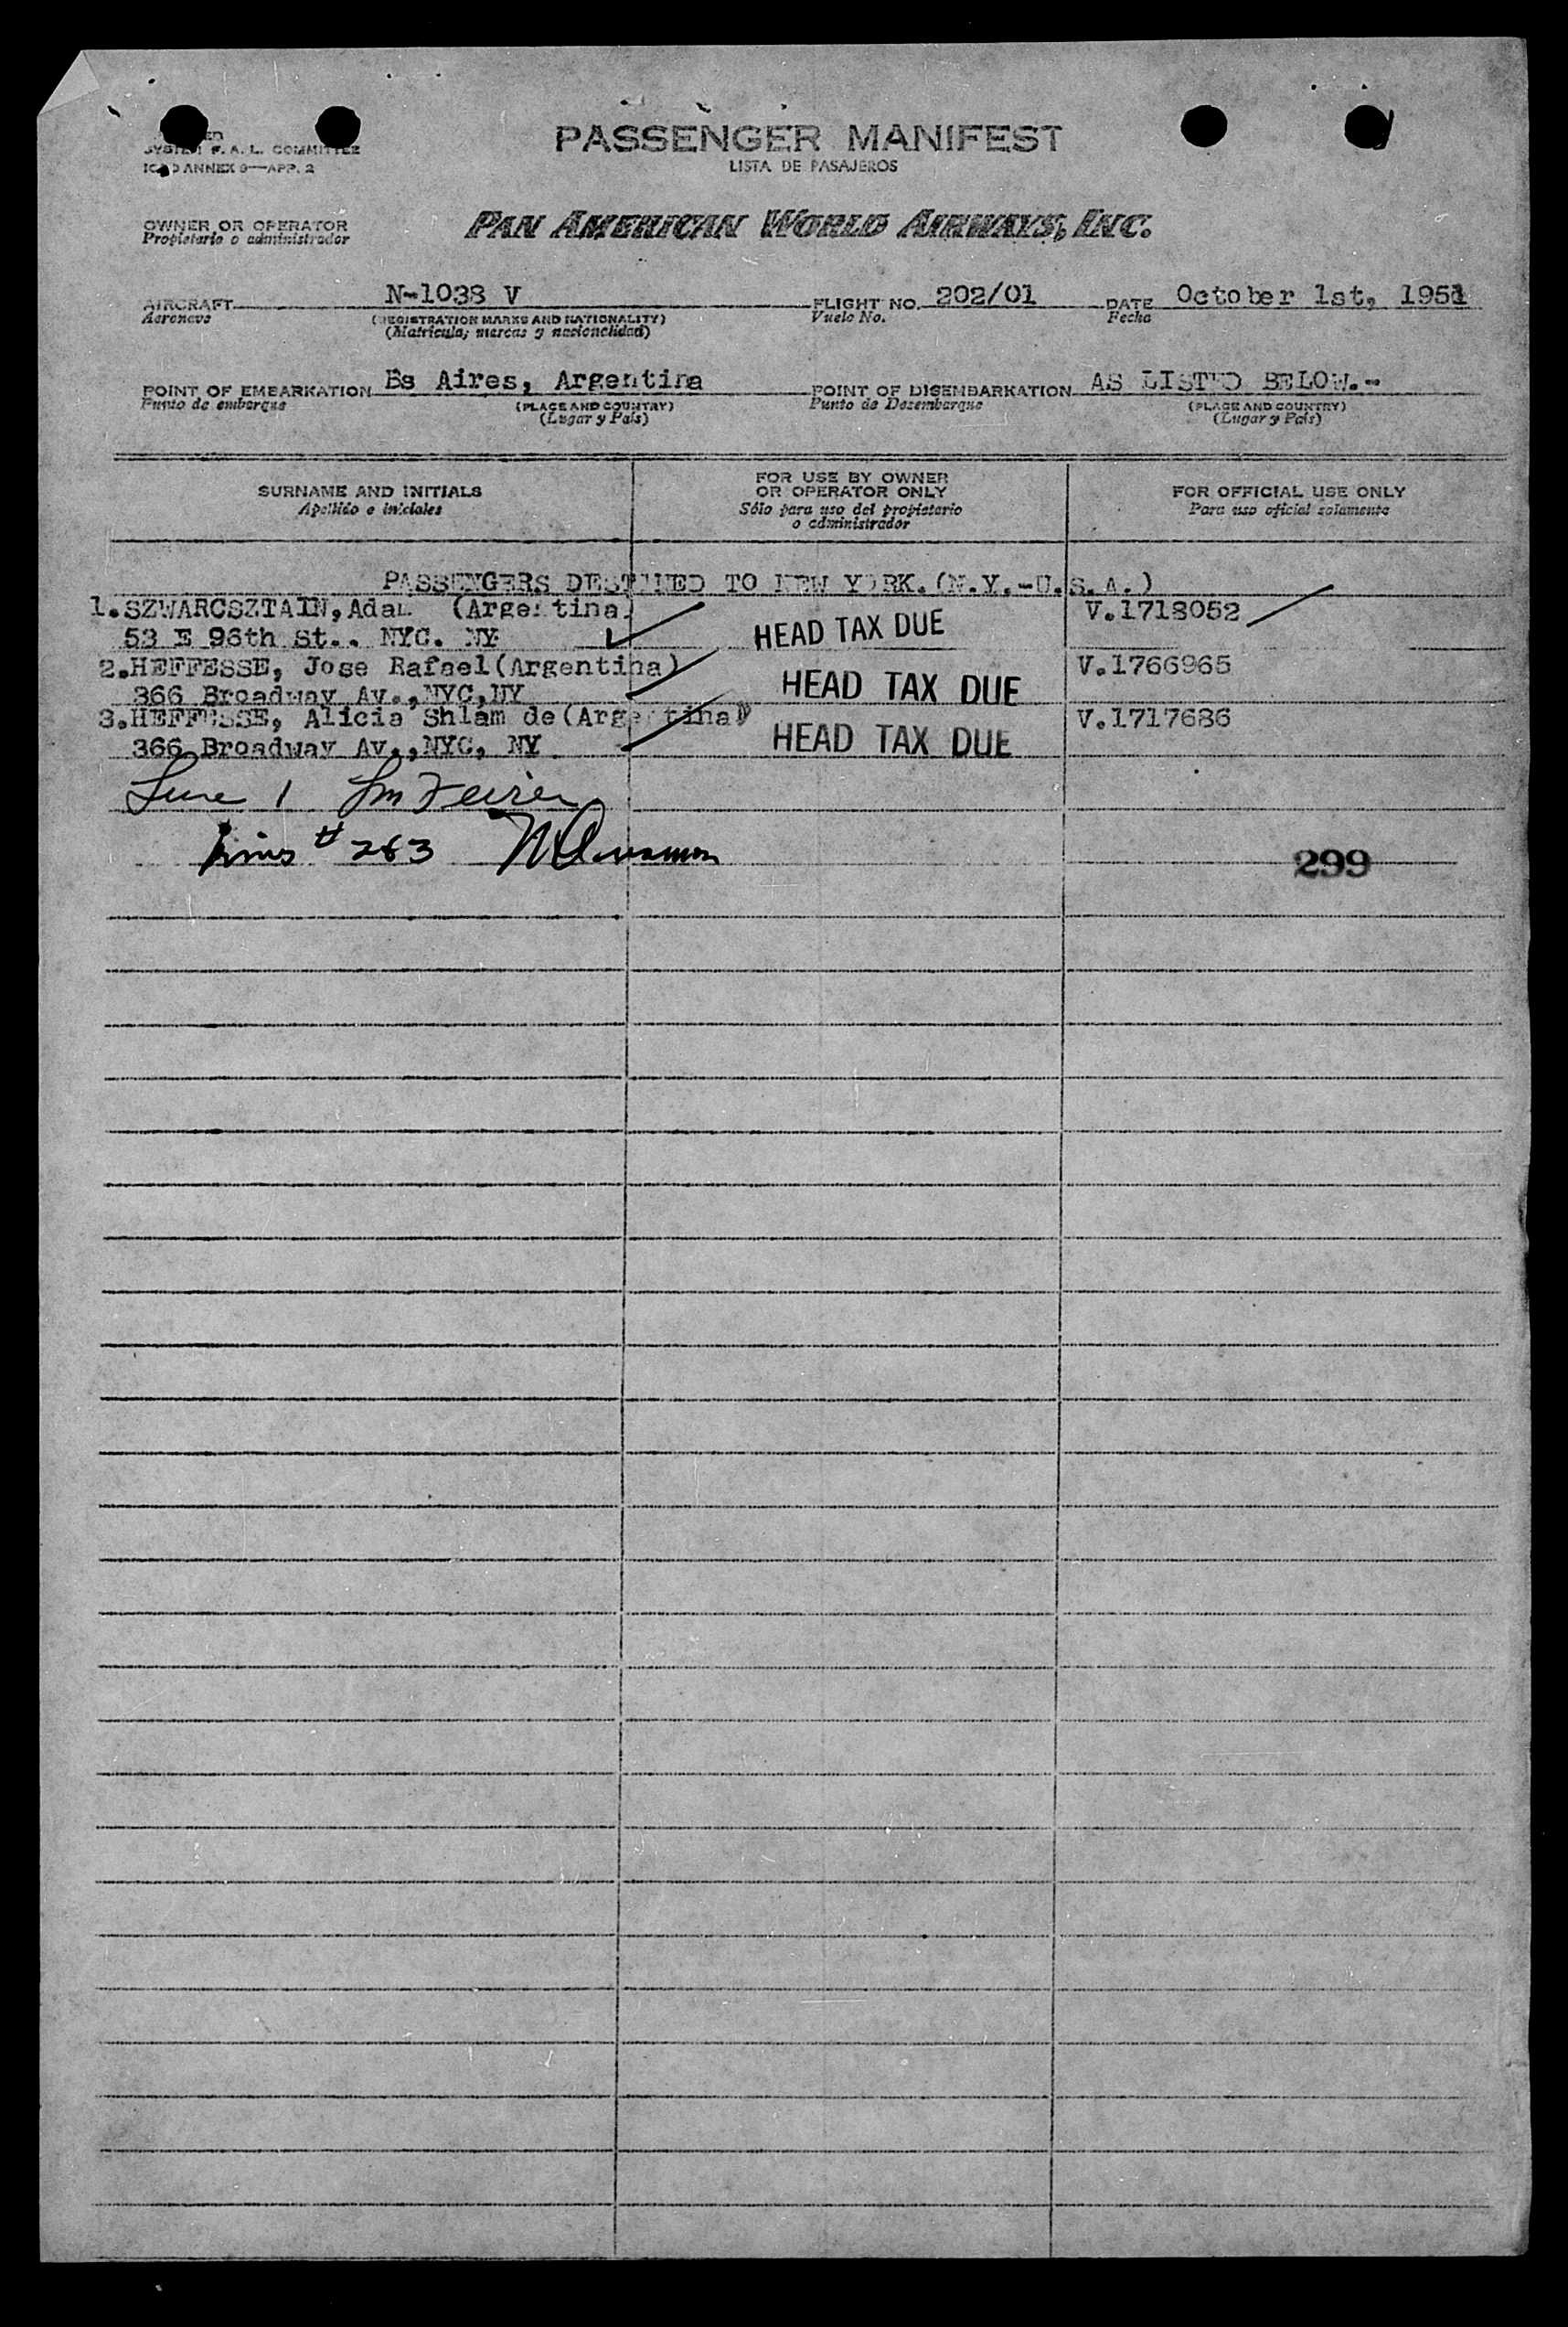 PASSENGER MANIFEST
LISTA DE PASAJEROS
SYSTEM F. A. L. COMMITTEE
ANNEX 9—APP. 2
OWNER OR OPERATOR
Propietario o administrador
PAN AMERICAN WORLD AIRWAYS, INC.
AIRCRAFT N-1038 V FLIGHT NO. 202/01 DATE October 1st, 1951
Aeronave (REGISTRATION MARKS AND NATIONALITY) Vuelo No. Fecha
(Matrícula, marcas y nacionalidad)
POINT OF EMBARKATION Bs Aires, Argentina POINT OF DISEMBARKATION AS LISTED BELOW.-
Punto de embarque (PLACE AND COUNTRY) Punto de Desembarque (PLACE AND COUNTRY)
(Lugar y País) (Lugar y País)
SURNAME AND INITIALS
Apellido e iniciales
FOR USE BY OWNER
OR OPERATOR ONLY
Sólo para uso del propietario
o administrador
FOR OFFICIAL USE ONLY
Para uso oficial solamente
PASSENGERS DESTINED TO NEW YORK.(N.Y.-U.S.A.)
1.SZWARCSZTAIN, Adam (Argentina) V.1718052
53 E 96th St.. NYC. NY HEAD TAX DUE
2.HEFFESSE, Jose Rafael(Argentina) V.1766965
366 Broadway Av.,NYC,NY HEAD TAX DUE
3.HEFFESSE, Alicia Shlam de(Argentina) V.1717686
366 Broadway Av.,NYC, NY HEAD TAX DUE
1
# 263
299